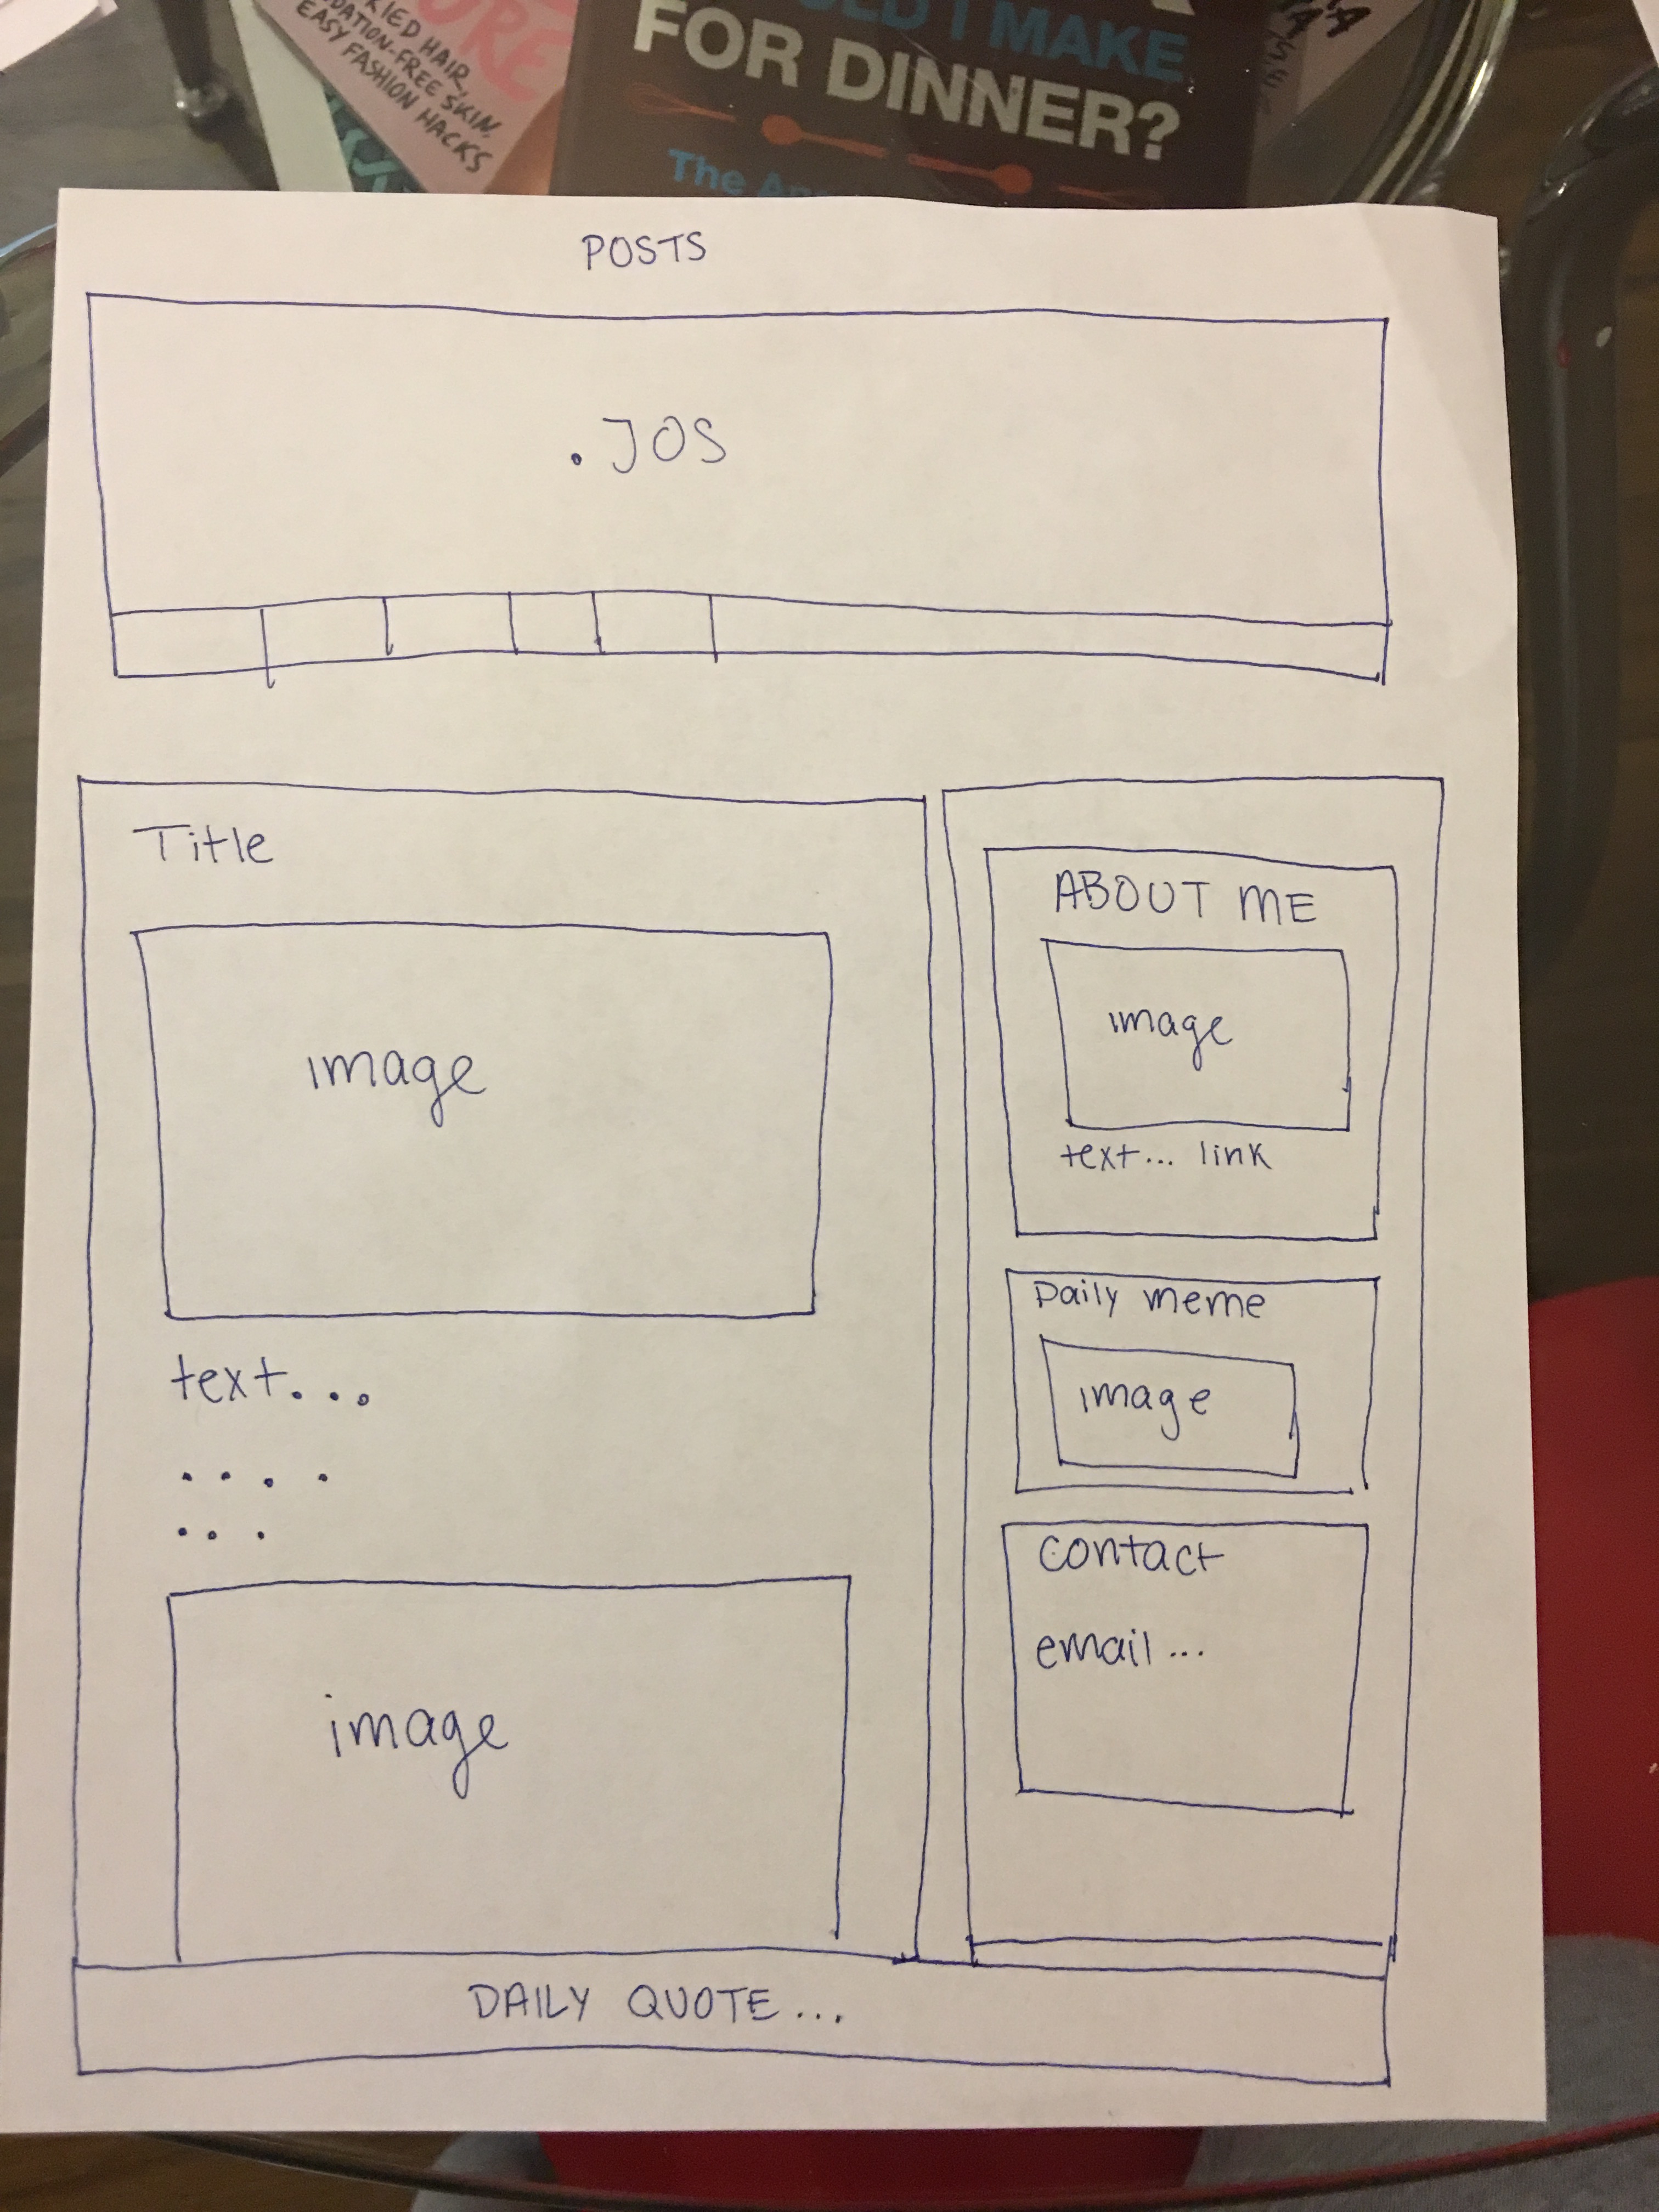 FRIED HAIR,
FOUNDATION-FREE SKIN,
EASY FASHION HACKS
I MAKE
FOR DINNER?
The
POSTS
.JOS
Title
image
text...
. . . .
. . .
image
ABOUT ME
image
text... link
Daily meme
image
contact
email...
DAILY QUOTE...